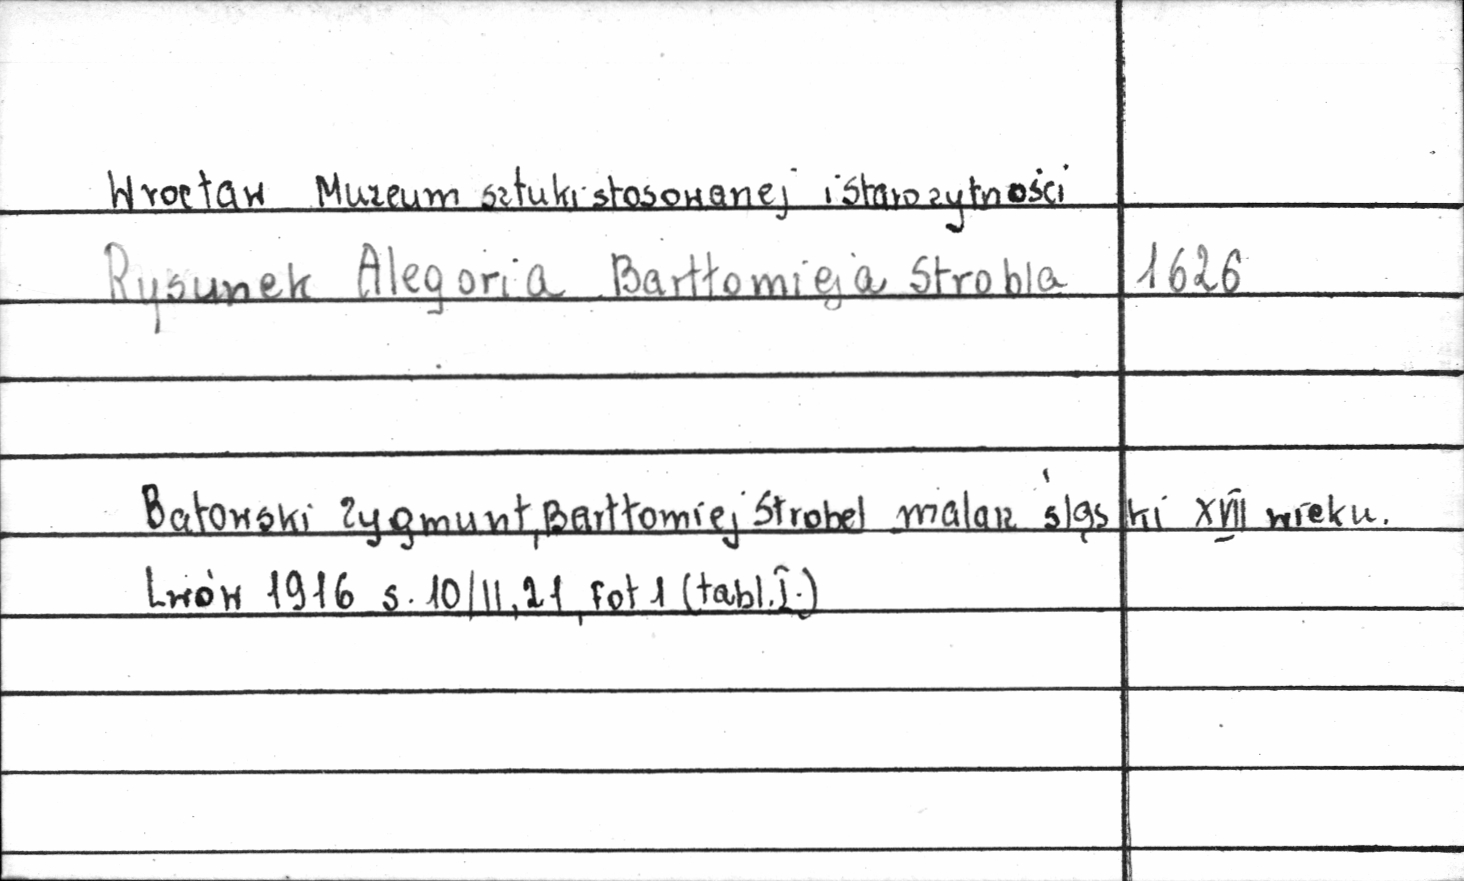 Wrocław Muzeum sztuki stosowanej i Starozytności
Rysunek Alegoria Bartłomieja Strobla 1626
Batowski Zygmunt, Bartłomiej Strobel malarz śląski XVII wieku.
Lwów 1916 s. 10/11, 21, fot 1 (tabl. I.)